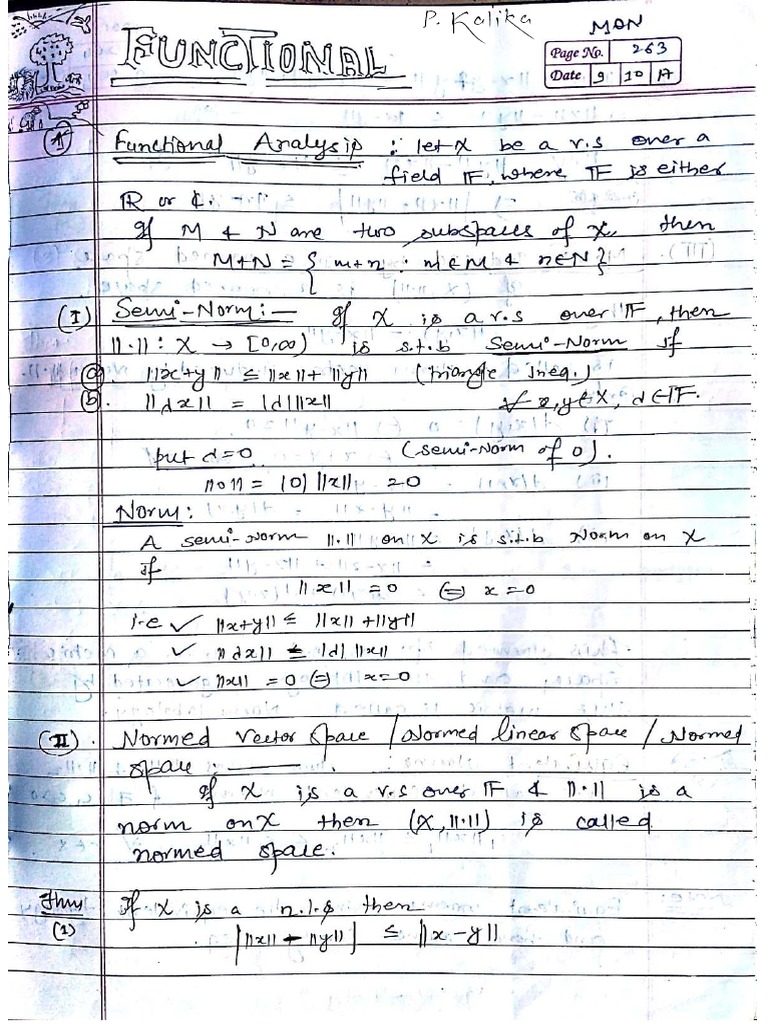 P. Kalika
MON
FUNCTIONAL
Page No. 263
Date 9 10 17
(1) Functional Analysis : let X be a v.s over a
field F, where F is either
R or ℂ.
If M & N are two subspaces of X, then
M+N = { m+n : m∈M & n∈N }
(I) Semi-Norm:— If X is a v.s over F, then
||·|| : X → [0,∞) is s.t.b Semi-Norm if
(a). ||x+y|| ≤ ||x||+||y|| (triangle ineq.)
(b). ||αx|| = |α|||x|| ∀ x,y∈X, α∈F.
put α=0 (semi-Norm of 0).
||0|| = |0| ||x|| =0
Norm:
A semi-norm ||·|| on X is s.t.b Norm on X
if
||x|| =0 ⇔ x=0
i.e ✓ ||x+y|| ≤ ||x||+||y||
✓ ||αx|| = |α| ||x||
✓ ||x|| = 0 ⇔ x=0
(II). Normed Vector space / Normed linear space / Normed
space :———.
If X is a v.s over F & ||·|| is a
norm on X then (X, ||·||) is called
normed space.
Thm If X is a n.l.s then
(1) | ||x|| - ||y|| | ≤ ||x-y||